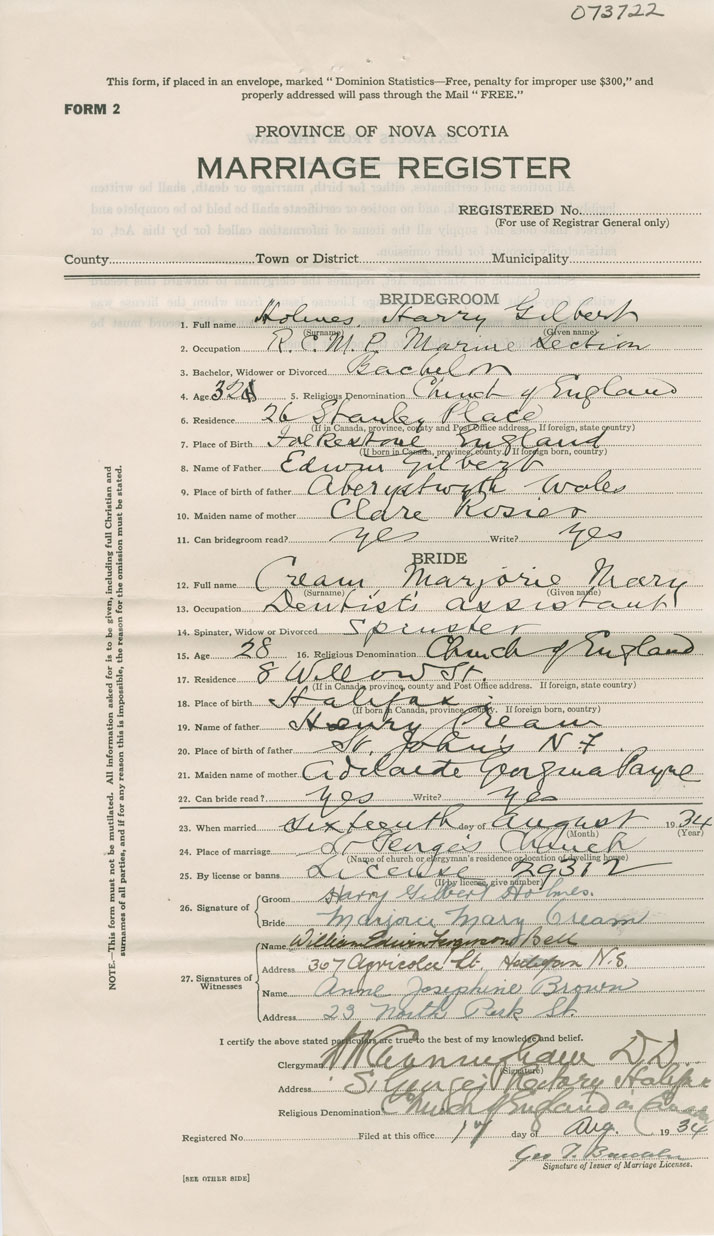 073722
This form, if placed in an envelope, marked "Dominion Statistics—Free, penalty for improper use $300," and
properly addressed will pass through the Mail "FREE."
FORM 2
PROVINCE OF NOVA SCOTIA
MARRIAGE REGISTER
REGISTERED No.
(For use of Registrar General only)
County Town or District Municipality
BRIDEGROOM
1. Full name Holmes, Harry Gilbert
(Surname) (Given name)
2. Occupation R.C.M.P. Marine Section
3. Bachelor, Widower or Divorced Bachelor
4. Age 32 5. Religious Denomination Church of England
6. Residence 26 Stanley Place
(If in Canada, province, county and Post Office address. If foreign, state country)
7. Place of Birth Folkestone England
(If born in Canada, province, county. If foreign born, country)
8. Name of Father Edwin Gilbert
9. Place of birth of father Aberystwyth Wales
10. Maiden name of mother Clare Rosier
11. Can bridegroom read? Yes Write? Yes
BRIDE
12. Full name Cream Marjorie Mary
(Surname) (Given name)
13. Occupation Dentist's assistant
14. Spinster, Widow or Divorced Spinster
15. Age 28 16. Religious Denomination Church of England
17. Residence 8 Willow St.
(If in Canada, province, county and Post Office address. If foreign, state country)
18. Place of birth Halifax
(If born in Canada, province, county. If foreign born, country)
19. Name of father Henry Cream
20. Place of birth of father St. John's N.F.
21. Maiden name of mother Adelaide Georgina Payne
22. Can bride read? Yes Write? Yes
23. When married sixteenth day of August 1934
(Month) (Year)
24. Place of marriage St George's Church
(Name of church or clergyman's residence or location of dwelling house)
25. By license or banns License 29312
(If by license, give number)
26. Signature of
Groom Harry Gilbert Holmes.
Bride Marjorie Mary Cream
27. Signatures of Witnesses
Name William Edwin Ferguson Bell
Address 307 Agricola St. Halifax N.S.
Name Anne Josephine Brown
Address 23 North Park St.
I certify the above stated particulars are true to the best of my knowledge and belief.
Clergyman Cunningham D.D.
(Signature)
Address St George's Rectory Halifax
Religious Denomination Church of England in Canada
Registered No. Filed at this office 17 day of Aug. 1934
Geo T.
Signature of Issuer of Marriage Licenses.
[SEE OTHER SIDE]
NOTE.—This form must not be mutilated. All information asked for is to be given, including full Christian and
surnames of all parties, and if for any reason this is impossible, the reason for the omission must be stated.